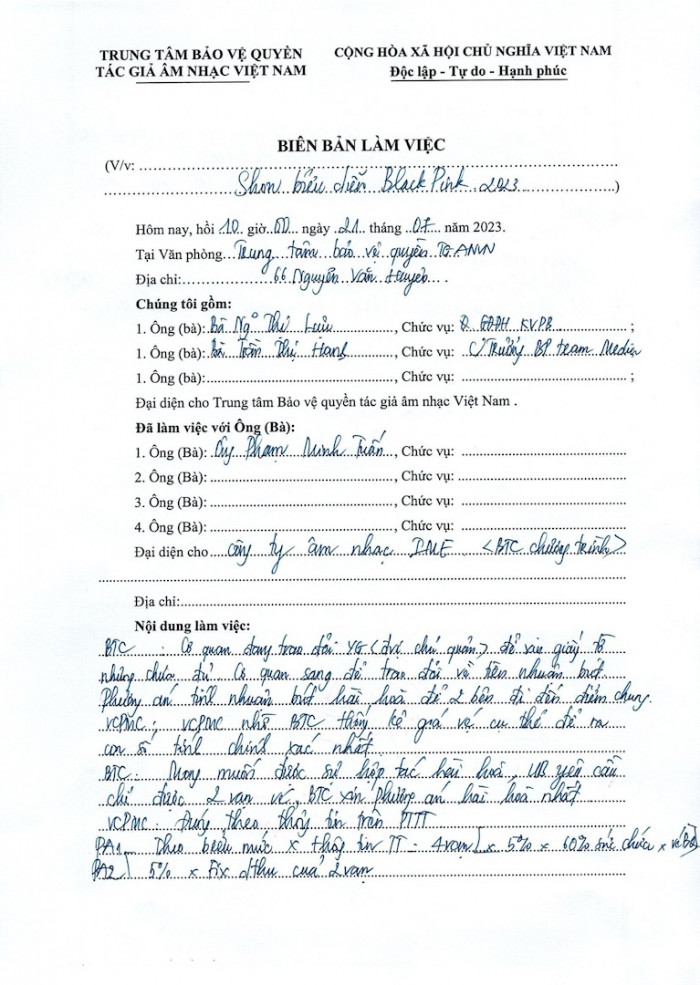 TRUNG TÂM BẢO VỆ QUYỀN
TÁC GIẢ ÂM NHẠC VIỆT NAM
CỘNG HÒA XÃ HỘI CHỦ NGHĨA VIỆT NAM
Độc lập - Tự do - Hạnh phúc
BIÊN BẢN LÀM VIỆC
(V/v:
Show biểu diễn BlackPink 2023)
Hôm nay, hồi 10 giờ 00 ngày 21 tháng 07 năm 2023.
Tại Văn phòng Trung tâm bảo vệ quyền TGANVN
Địa chỉ: 66 Nguyễn Văn Huyên
Chúng tôi gồm:
1. Ông (bà): Bà Ngô Thị Lựu, Chức vụ: GĐĐH KVPB ;
1. Ông (bà): Bà Trần Thị Hạnh, Chức vụ: Trưởng BP team Media
1. Ông (bà):, Chức vụ: ;
Đại diện cho Trung tâm Bảo vệ quyền tác giả âm nhạc Việt Nam .
Đã làm việc với Ông (Bà):
1. Ông (Bà): Ông Phạm Minh Tuấn, Chức vụ:
2. Ông (Bà):, Chức vụ:
3. Ông (Bà):, Chức vụ:
4. Ông (Bà):, Chức vụ:
Đại diện cho công ty âm nhạc IME <BTC chương trình>
Địa chỉ:
Nội dung làm việc:
BTC : Cơ quan đang trao đổi YG (đvị chủ quản) để xin giấy tờ
nhưng chưa đủ. Cơ quan sang để trao đổi về tiền nhuận bút
Phương án tính nhuận bút hài hoà để 2 bên đi đến điểm chung.
VCPMC: VCPMC nhờ BTC thống kê giá vé cụ thể để ra
con số tính chính xác nhất
BTC: Mong muốn được sự hợp tác hài hoà, UB yêu cầu
chỉ được 2 vạn vé, BTC xin phương án hài hoà nhất
VCPMC: theo thông tin trên TTTT
PA1 Theo biểu mức x thông tin TT - 4 vạn x 5% x 60% sức chứa x vé
PA2 5% x Fix dthu của 2 vạn